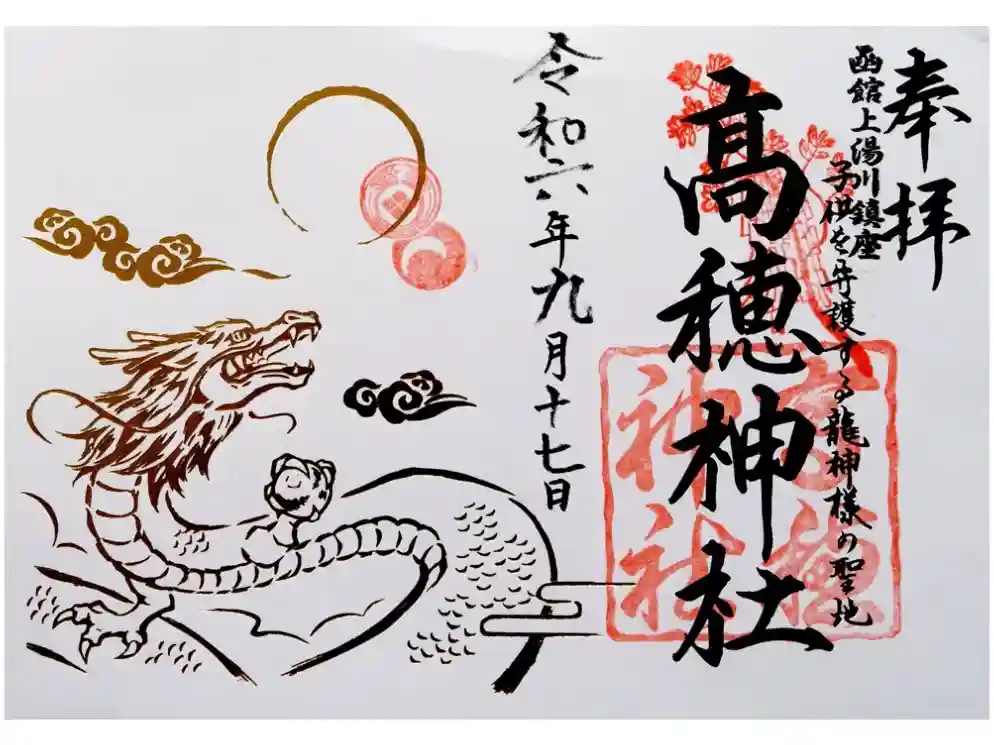 奉拝
函館上湯川鎮座
子供を守護する龍神様の聖地
髙穂神社
令和六年九月十七日